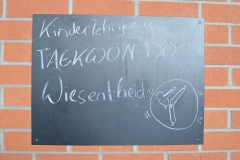 Kinderlehrgang
TAEKWON-DO
Wiesentheid